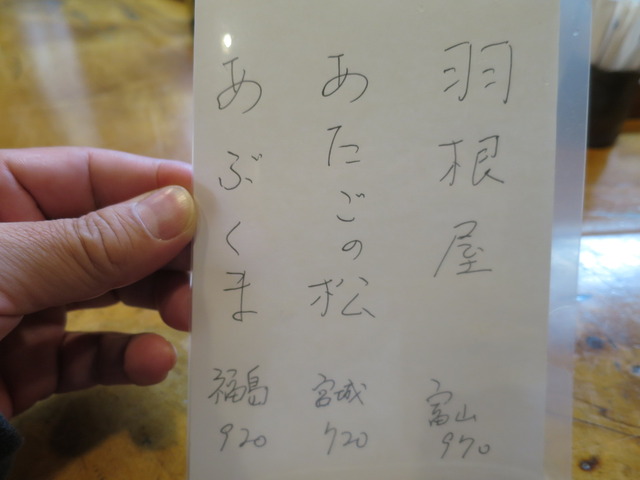 羽根屋
富山
970
あたごの松
宮城
720
あぶくま
福島
920